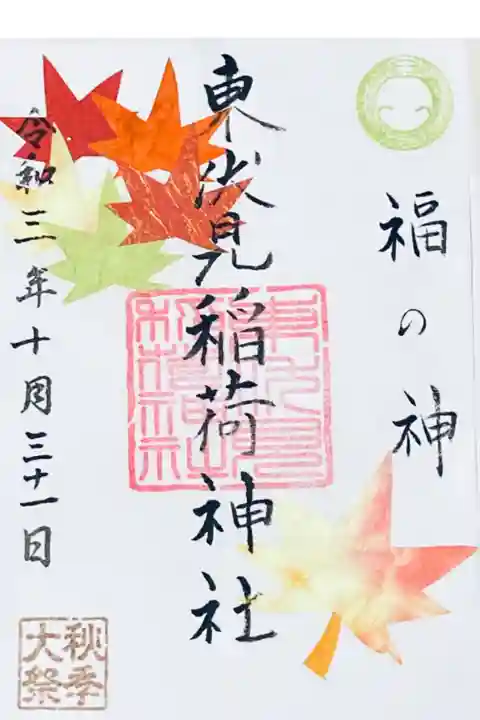 福の神
東伏見稲荷神社
令和三年十月三十一日
秋季
大祭